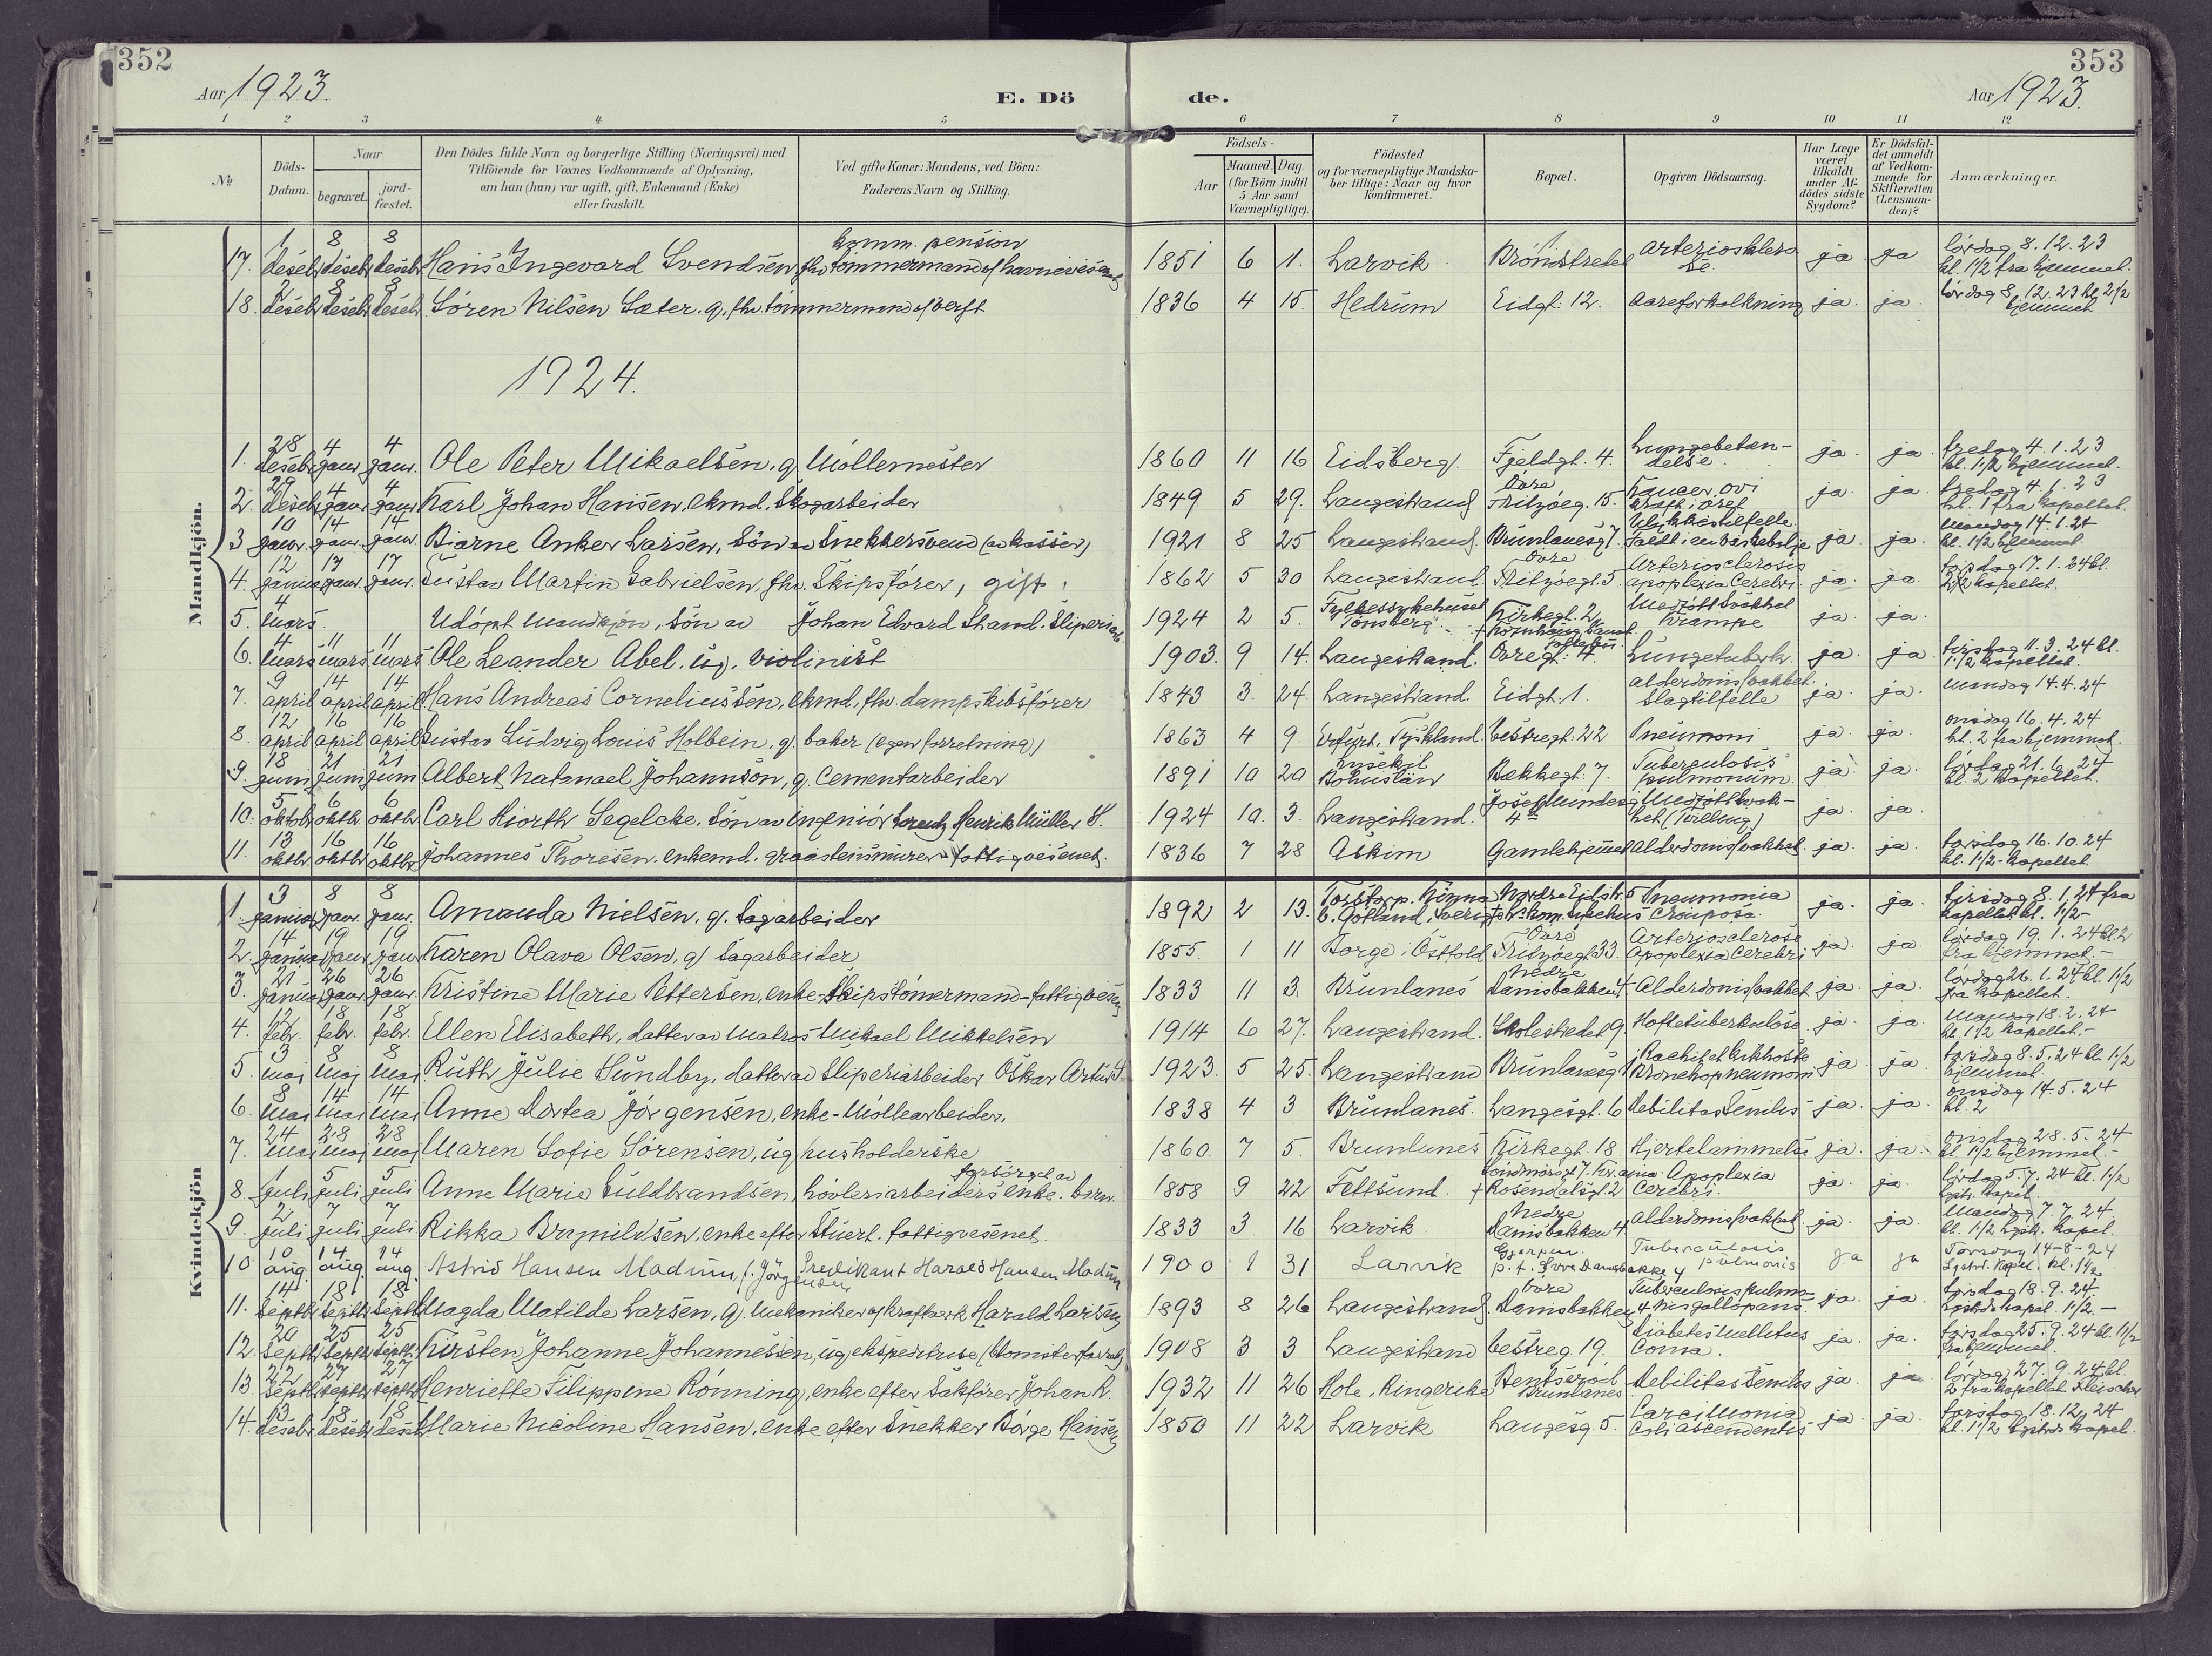 352
353
Aar 1923.
E. Dö
de.
Aar 1923.
1 2 3 4 5 6 7 8 9 10 11 12
No
Döds-Datum.
Naar
begravet.
jord-fæstet.
Den Dödes fulde Navn og borgerlige Stilling (Næringsvei) med
Tilföiende for Voxnes Vedkommende af Oplysning,
om han (hun) var ugift, gift, Enkemand (Enke)
eller fraskilt.
Ved gifte Koner: Mandens, ved Börn:
Faderens Navn og Stilling.
Födsels-
Aar
Maaned. Dag.
(for Börn indtil
5 Aar samt
Værnepligtige).
Födested
og for værnepligtige Mandska-
ber tillige: Naar og hvor
konfirmeret.
Bopæl.
Opgiven Dödsaarsag.
Har Læge
været
tilkaldt
under Af-
dödes sidste
Sygdom?
Er Dödsfal-
det anmeldt
af Vedkom-
mende for
Skifteretten
(Lensman-
den)?
Anmærkninger.
Mandkjön.
17. 1 deseb. 8 deseb. 8 deseb. Hans Ingevard Svendsen, fhv. tömmermand / havnevesenet komm. pension 1851 6 1. Larvik. arterioskle ja ja lördag 8.12.23 kl. 1 1/2 fra hjemmet.
18. 2 deseb. 8 deseb. 8 deseb. Sören Nilsen Sæter. g. fhv. tömmermand verft 1836 4 15. Hedrum Eidgt. 12. aareforkalkning ja. ja. lördag 8.12.23 kl. 2 1/2 hjemmet
1924.
1. 28 deseb. 4 janr. 4 janr. Ole Peter Mikaelsen. g. Möllemester 1860 11 16 Eidsberg. Fjeldgt. 4. Lungebetændelse. ja. ja. fredag 4.1.23 kl. 1 1/2 hjemmet.
2. 29 deseb. 4 janr. 4 janr. Karl Johan Hansen. ekmd. Skogarbeider 1849 5 29. Langestrand Övre Fritzöeg. 15. ja. ja. fredag 4.1.23 kl. 1 fra kapellet.
3 10 janr. 14 janr. 14 janr. Bjarne Anker Larsen, Sön av Snekkersvend 1921 8 25 Langestrand. Brunlanesg 7. Ulykkestilfelle. faldt i en ja ja. mandag 14.1.24 kl. 1 1/2 hjemmet.
4. 12 januar 17 janr. 17 janr. Gustav Martin Gabrielsen, fhv. Skipsförer, gift. 1862 5 30 Langestrand Övre Fritzöegt. 5. Arteriosclerosis apoplexia cerebri. ja. ja. torsdag 17.1.24 kl. 2 1/2 kapellet.
5. 4 mars. Udöpt mandkjön, Sön av Johan Edvard Strand. Sliperiarb. 1924 2 5. Fylkessykehuset Tönsberg. Kirkegt. 2 Medfött Svakhet Krampe ja ja.
6. 4 mars 11 mars 11 mars Ole Leander Abel. ug. violinist 1903. 9 14. Langestrand. Övregt. 4. Lungetuberk. ja. ja tirsdag 11.3.24 kl. 1 1/2 kapellet.
7. 9 april 14 april 14 april Hans Andreas Corneliussen, ekmd, fhv. dampskibsförer 1843 3. 24. Langestrand. Eidgt. 1. alderdomssvakhet. Slagtilfelle ja. ja. mandag 14.4.24
8. 12 april 16 april 16 april Gustav Ludvig Louis Holbein, g. baker (egen forretning) 1863 4 9. Erfurt, Tyskland. Vestregt. 22 Pneumoni ja. ja. onsdag 16.4.24 kl. 2 fra hjemmet.
9. 18 juni 21 juni 21 juni Albert Natanael Johannson, g. cementarbeider 1891 10 20 Lysekil Bohuslän Bekkegt. 7. Tuberculosis pulmonum ja. ja. lördag 21.6.24 kl. 2 kapellet.
10. 5 oktob 6 oktb 6 oktb Carl Hiorth Segelcke. Sön av ingeniör Lorentz Henrik Müller S. 1924 10. 3. Langestrand. Josef 4 Medfött svakhet (tvilling) ja. ja.
11. 13 oktb 16 oktb 16 oktb Johannes Thoresen. enkemd. graasteinsmurer - fattigvesenet. 1836 7 28 Askim Gamlehjemmet Alderdomssvakhet. ja. ja. torsdag 16.10.24 kl. 1 1/2 - kapellet
Kvindekjön
1. 3 januar 8 janr. 8 janr. Amanda Nielsen, g. Sagarbeider 1892 2 13. Pneumonia Crouposa. ja. ja. tirsdag 8.1.24 fra kapellet kl. 1 1/2
2. 14 januar 19 janr 19 janr Karen Olava Olsen, g. Sagarbeider 1855. 1 11 Borge i Östfold Övre Fritzöegt 33. Arteriosclerose Apoplexia Cerebri ja. ja. lördag 19.1.24 kl 2 fra hjemmet.-
3. 21 januar 26 janr. 26 janr. Kristine Marie Pettersen, enke - Skipstömermand - fattigvesen 1833 11 3. Brunlanes Nedre Damsbakken 4 Alderdomssvakhet ja. ja. lördag 26.1.24 kl. 1 1/2 fra kapellet.
4. febr. 18 febr. 18 febr. Ellen Elisabeth, datter av Matros Mikael Mikkelsen 1914 6 27. Langestrand. Skolestredet 9 Hoftetuberkulose. ja. ja. Mandag 18.2.24 kl. 1 1/2 kapellet.-
5. 3 maj 8 maj 8 maj Ruth Julie Sundby, datter av Sliperiarbeider Oskar Artur S. 1923. 5 25. Langestrand Brunlanesg Rachitet Kikhoste Bronchopneumoni ja ja. torsdag 8.5.24 kl. 1 1/2 hjemmet
6. 8 mai 14 mai 14 mai Anne Dortea Jörgensen, enke - Möllearbeider. 1838 4 3 Brunlanes. Langesgt. 6 Debilitas Senilis ja. ja. onsdag 14.5.24 kl. 2
7. 24 mai 28 maj 28 maj Maren Sofie Sörensen, ug husholderske 1860. 7 5. Brunlanes Kirkegt. 18. Hjertelammelse ja. ja. onsdag 28.5.24 kl. 1 1/2 hjemmet.-
8. 1 juli 5 juli 5 juli Anne Marie Guldbrandsen, hövleriarbeiders enke. forsörget av barn. 1858 9 22 Fettsund. + Rosendalsgt. 2 Apoplexia Cerebri. ja. ja. lördag 5.7.24 kl. 1 1/2
9. 2 juli 7 juli 7 juli Rikka Brynildsen, enke efter Stuert. fattigvesenet. 1833 3 16 Larvik. Nedre Damsbakken 4. alderdomssvakhet ja. ja. Mandag 7.7.24. kl. 1 1/2 kapel.
10 10 aug. 14 aug. 14 aug. Astrid Hansen Madum, f. Jörgensen Predikant Harald Hansen Madum 1900 1 31 Larvik Gjerpen. p.t. Övre Damsbakke 4 Tuberculosis pulmonis ja ja Torsdag 14-8-24
11. 14 septb 18 septb 18 septb Magda Matilde Larsen, g. Mekaniker Harald Larsen 1893 8 26 Langestrand. Övre Damsbakken 4. Tuberculosis pulmonis gallopans. ja. ja. torsdag 18.9.24. kapel. 1 1/2.-
12. 20 septb 25 septb 25 septb. Kirsten Johanne Johannessen, ug, ekspeditrise (blomsterforretn) 1908 3 3 Langestrand Vestreg. 19. Diabetes Mellitus Coma. ja. ja. torsdag 25.9.24 kl. 1 1/2 fra hjemmet.
13. 22 septb 27 septb 27 septb Henriette Filippine Rönning, enke efter Sakförer Johan R. 1932 11 26 Hole, Ringerike Brunlanes Debilitas Senilis ja. ja lördag 27.9.24 kl. 2 fra kapellet Fleischer
14. 13 deseb. 18 deseb. 18 deseb. Marie Nicoline Hansen. enke efter Snekker Börge Hansen 1850 11 22 Larvik Langesg. 5. Carcinoma Coli ascendentis ja. ja. torsdag 18.12.24 kl. 1 1/2 kapel.